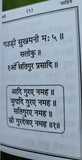 गउड़ी सुखमनी मः ५ ॥
सलोकु ॥
१ओं सतिगुर प्रसादि ॥
आदि गुरए नमह ॥
जुगादि गुरए नमह ॥
सतिगुरए नमह ॥
स्री गुरदेवए नमह ॥१॥